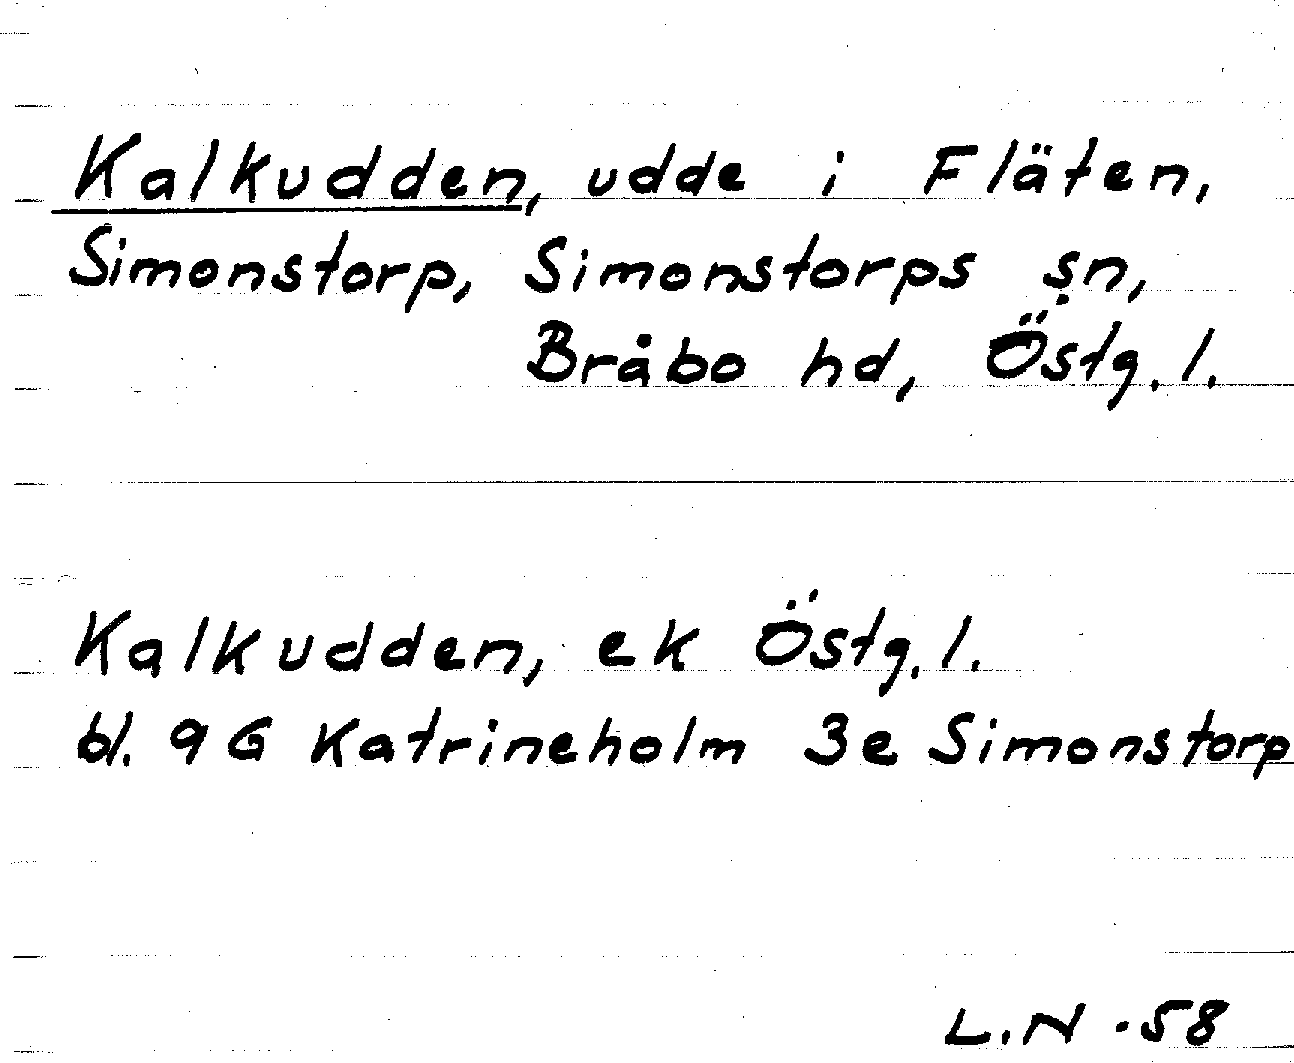 Kalkudden, udde i Fläten,
Simonstorp, Simonstorps sn,
Bråbo hd, Östg. l.
Kalkudden, ek Östg. l.
bl. 9G Katrineholm 3e Simonstorp
L.N -58